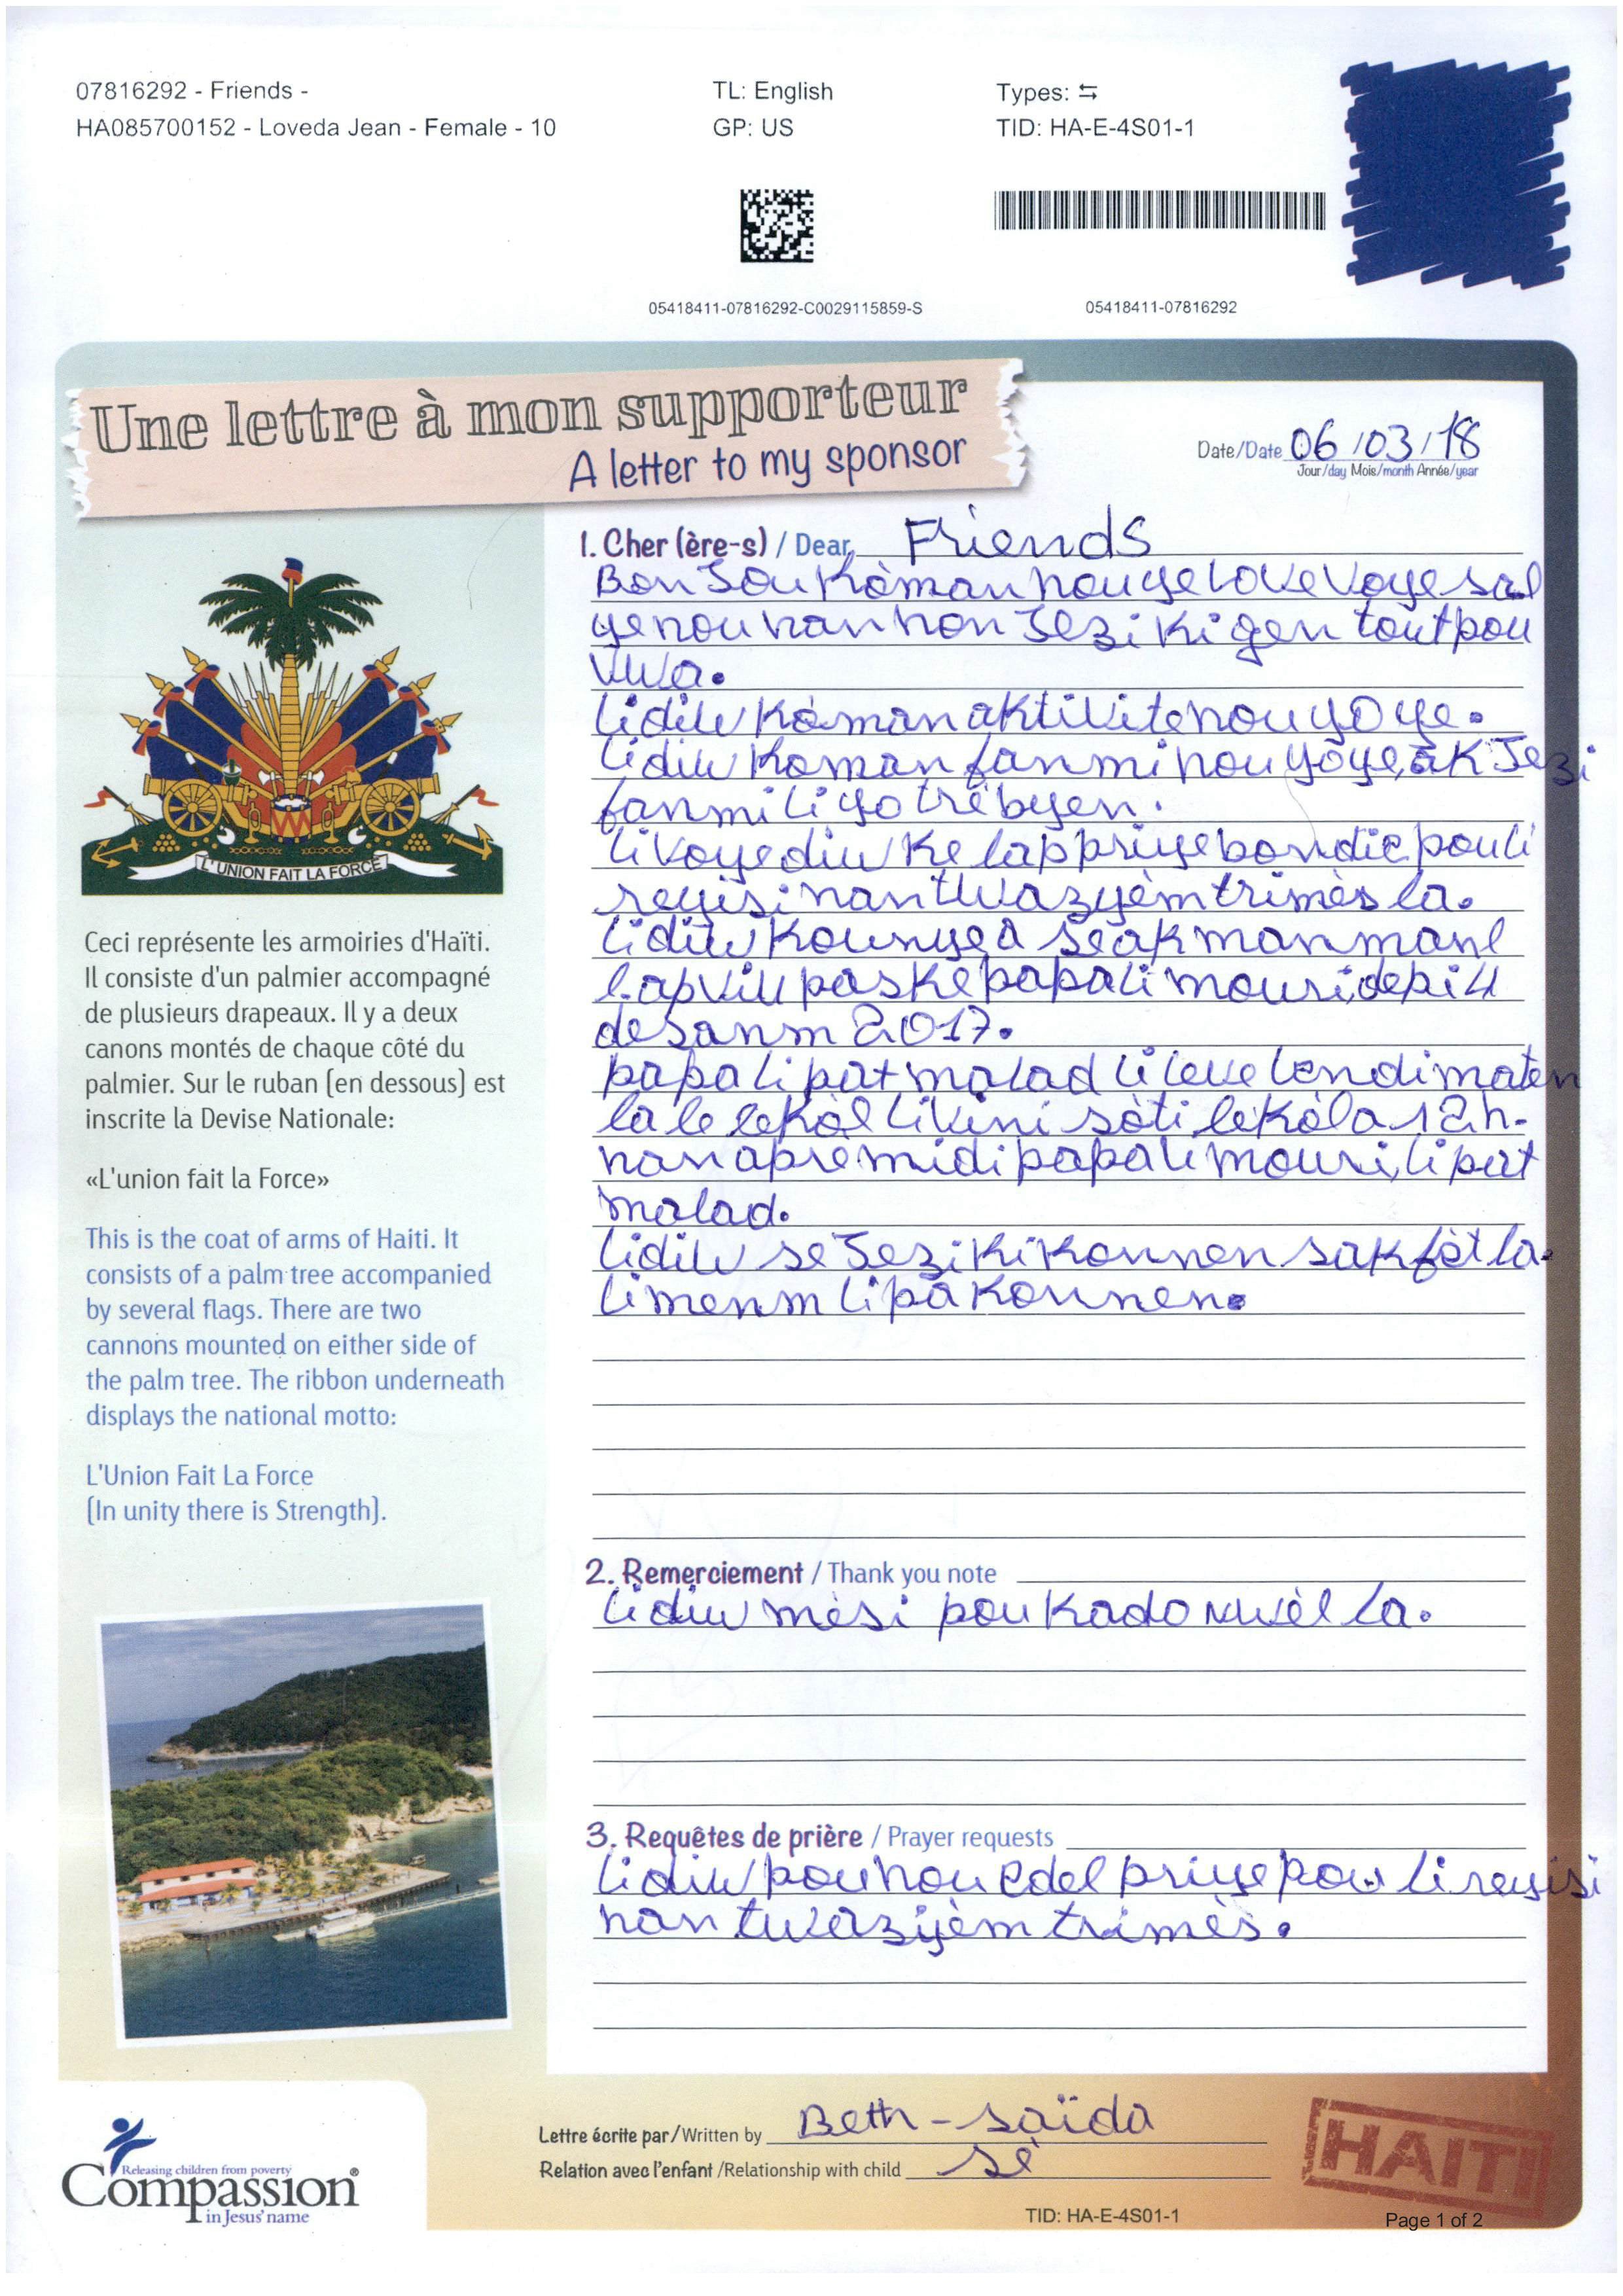 07816292 - Friends -
HA085700152 - Loveda Jean - Female - 10
TL: English
GP: US
Types: ⇆
TID: HA-E-4S01-1
05418411-07816292-C0029115859-S
05418411-07816292
Une lettre à mon supporteur
A letter to my sponsor
Date/Date 06/03/18
Jour/day Mois/month Année/year
L'UNION FAIT LA FORCE
Ceci représente les armoiries d'Haïti.
Il consiste d'un palmier accompagné
de plusieurs drapeaux. Il y a deux
canons montés de chaque côté du
palmier. Sur le ruban (en dessous) est
inscrite la Devise Nationale:
«L'union fait la Force»
This is the coat of arms of Haiti. It
consists of a palm tree accompanied
by several flags. There are two
cannons mounted on either side of
the palm tree. The ribbon underneath
displays the national motto:
L'Union Fait La Force
(In unity there is Strength).
1. Cher (ère-s) / Dear, Friends
Bon Jou kòman nou ye love voye sal
ye nou nan non Jezi ki gen tout pou
vwa.
li di w kòman aktivite nou yo ye.
li di w koman fanmi nou yo ye, ak Jezi
fanmi li yo trè byen.
li voye di w ke l ap priye bondie pou li
reyisi nan twazyèm trimès la.
li di w kounye a se ak manman l
l ap viv paske papa li mouri depi 4
desanm 2017.
papa li pat malad li leve lendi maten
l ale lekòl li vini sòti lekòl a 12h.
nan apre midi papa li mouri, li pat
malad.
li di w se Jezi ki konnen sak fèt la.
li menm li pa konnen.
2. Remerciement / Thank you note
li di w mèsi pou kado nwèl la.
3. Requêtes de prière / Prayer requests
li di w pou nou ede l priye pou li reyisi
nan twazyèm trimès.
Lettre écrite par/Written by Beth-saïda
Relation avec l'enfant/Relationship with child sè
Releasing children from poverty
Compassion®
in Jesus' name
HAITI
TID: HA-E-4S01-1
Page 1 of 2